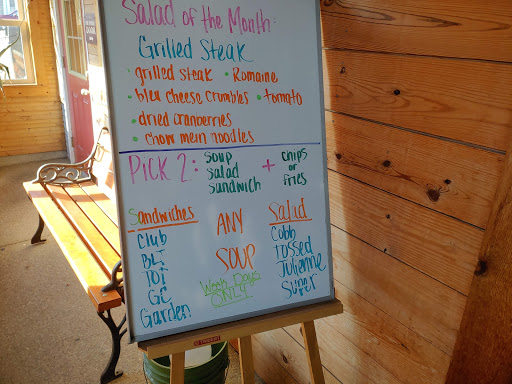 Salad of the Month:
Grilled Steak
• grilled steak • Romaine
• bleu cheese crumbles • tomato
• dried cranberries
• chow mein noodles
Pick 2: soup salad sandwich + chips or fries
Sandwiches
Club
BLT
TOT
GC
Garden
ANY
SOUP
Week Days
ONLY
Salid
Cobb
Tossed
Julienne
Super